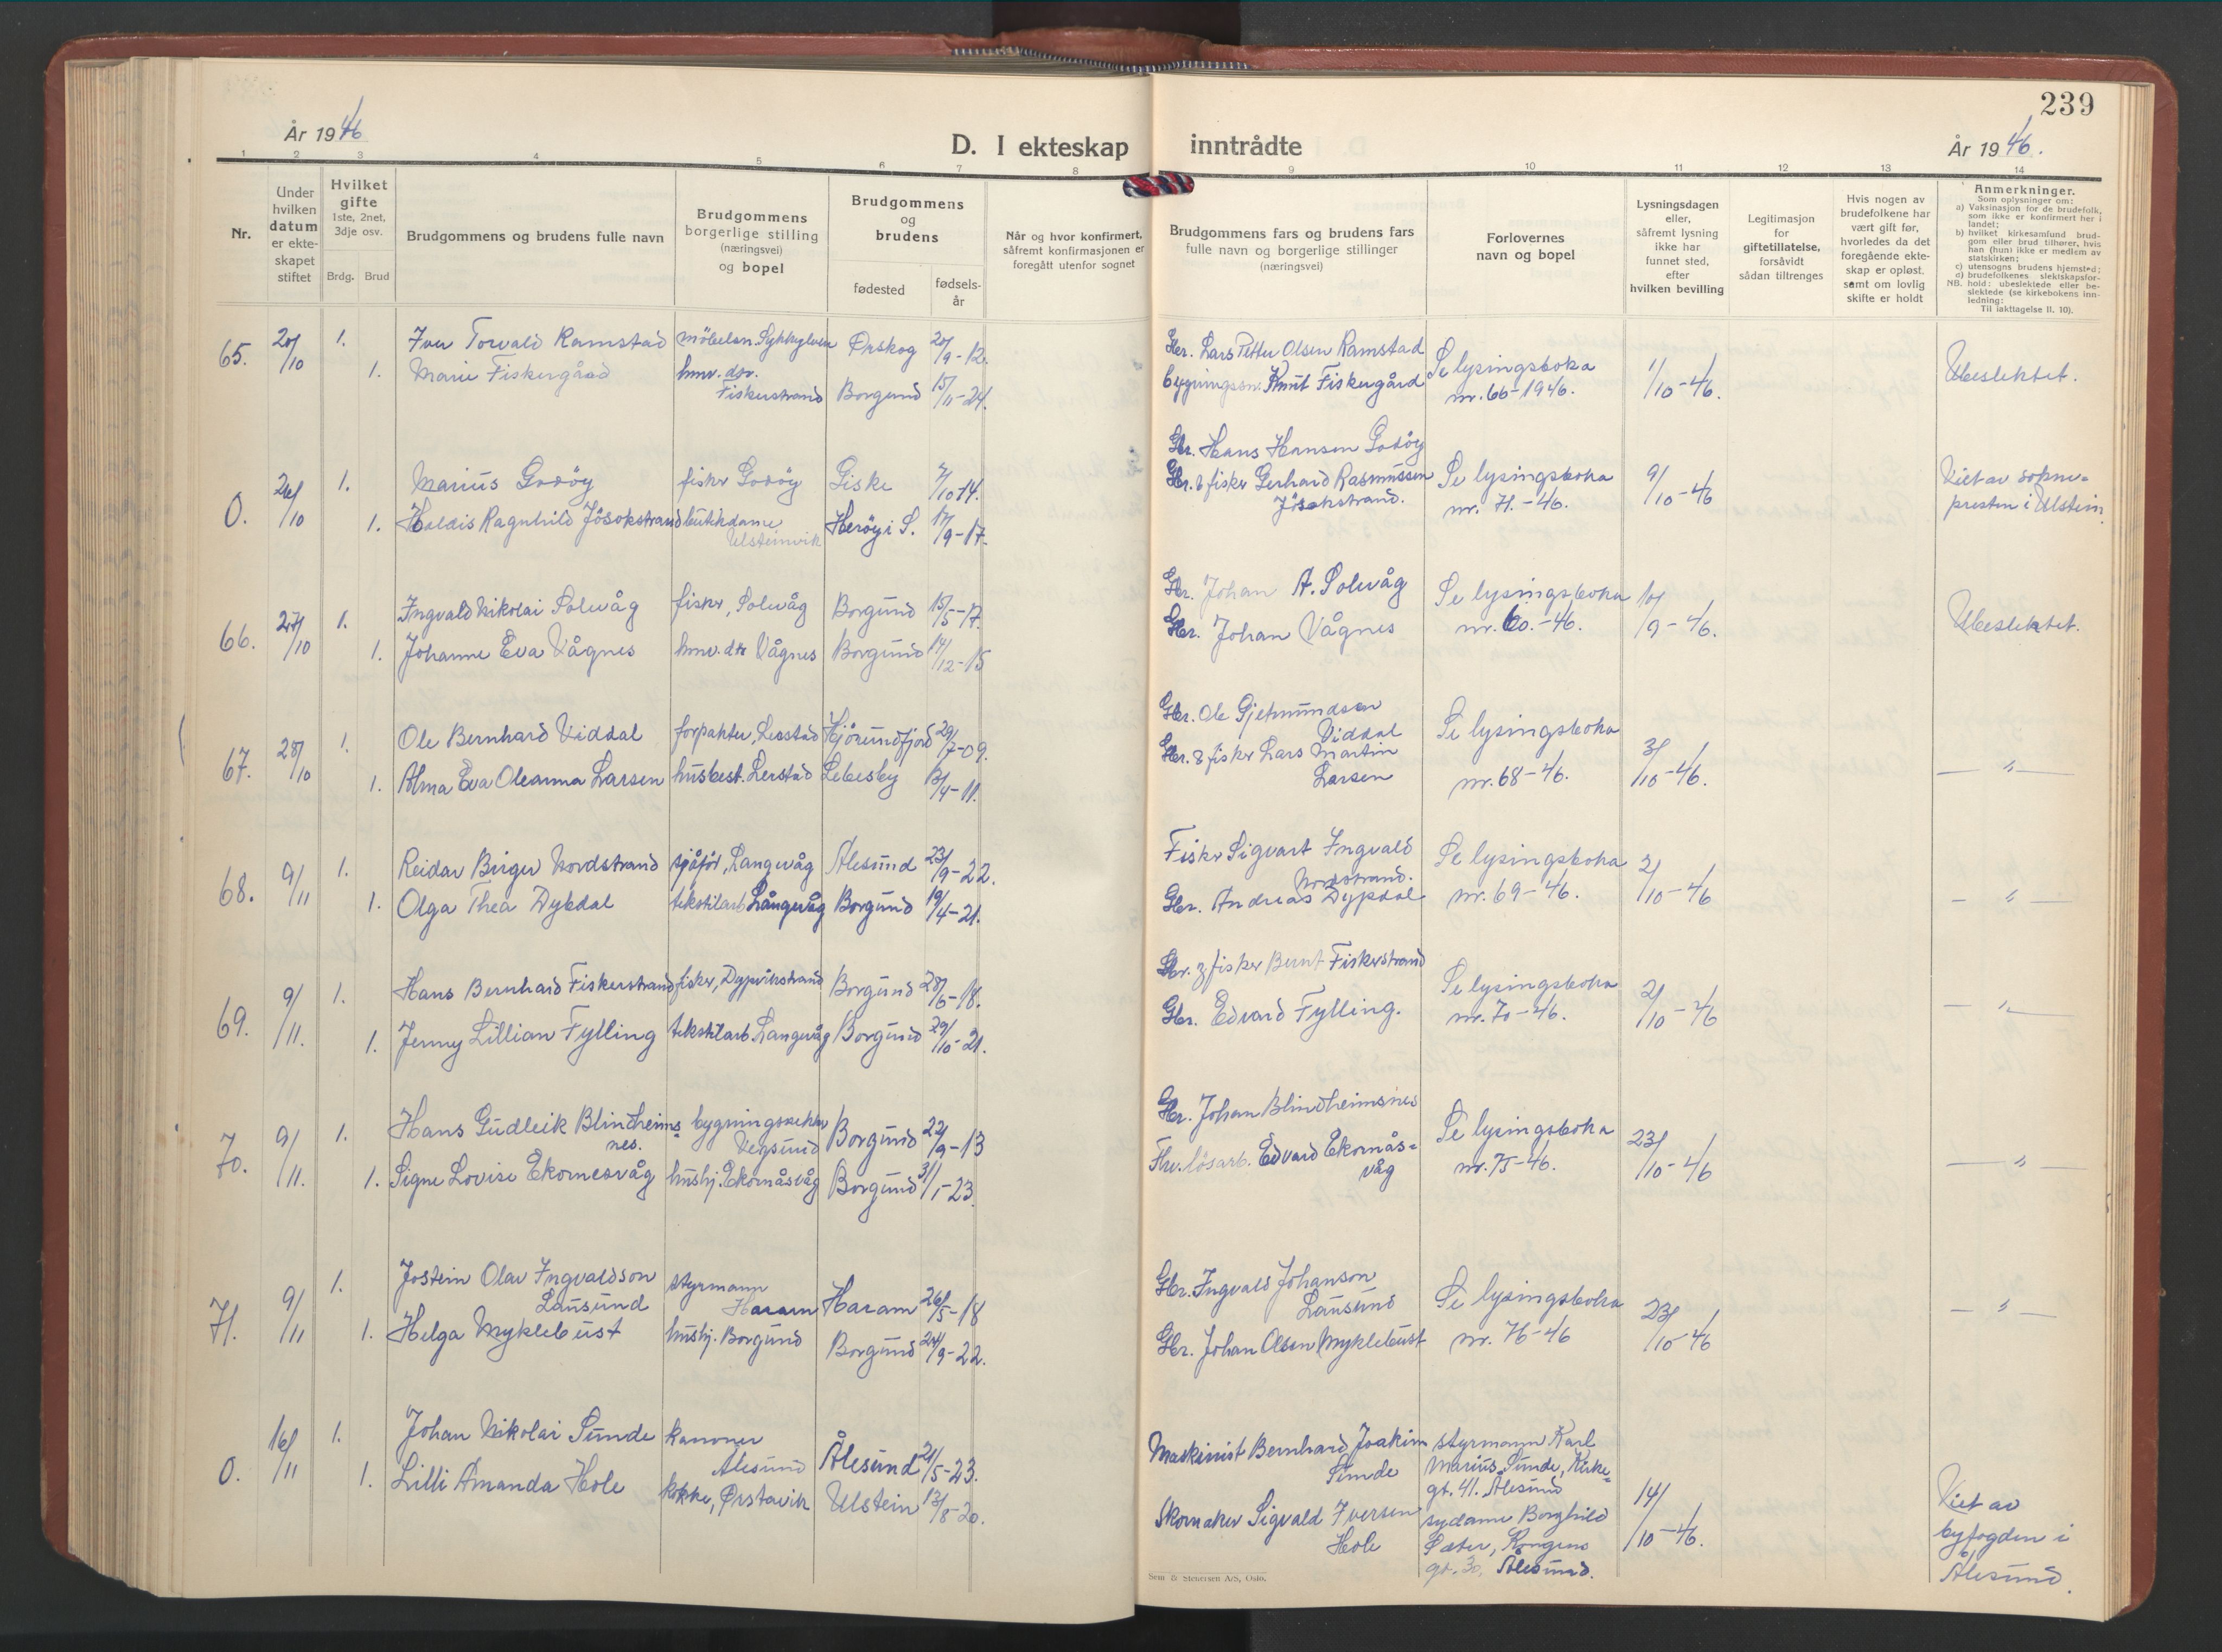 239
År 1946
D. I ekteskap inntrådte
År 1946.
1 2 3 4 5 6 7 8 9 10 11 12 13 14
Nr.
Under hvilken datum er ekte-skapet stiftet
Hvilket gifte
1ste, 2net, 3dje osv.
Brdg. Brud
Brudgommens og brudens fulle navn
Brudgommens borgerlige stilling (næringsvei) og bopel
Brudgommens og brudens
fødested
fødsels-år
Når og hvor konfirmert, såfremt konfirmasjonen er foregått utenfor sognet
Brudgommens fars og brudens fars fulle navn og borgerlige stillinger (næringsvei)
Forlovernes navn og bopel
Lysningsdagen eller, såfremt lysning ikke har funnet sted, efter hvilken bevilling
Legitimasjon for giftetillatelse, forsåvidt sådan tiltrenges
Hvis nogen av brudefolkene har vært gift før, hvorledes da det foregående ekte-skap er opløst, samt om lovlig skifte er holdt
Anmerkninger.
Som oplysninger om:
a) Vaksinasjon for de brudefolk, som ikke er konfirmert her i landet;
b) hvilket kirkesamfund brud-gom eller brud tilhører, hvis han (hun) ikke er medlem av statskirken;
c) utensogns brudens hjemsted;
d) brudefolkenes slektskapsfor-hold: ubeslektede eller be-slektede (se kirkebokens inn-ledning:
NB. Til iakttagelse II. 10).
65. 20/10 1. Iver Torvald Ramstad møbelsn. Sykkylven Ørskog 20/9-12. Gbr. Lars Petter Olsen Ramstad Se lysingsboka 1/10-46. Ubeslektet.
1. Marie Fiskergård hmv. dtr. Fiskerstrand Borgund 15/11-24. bygningssn. Knut Fiskergård nr. 66-1946.
0. 26/10 1. Marius Godøy fisker Godøy Giske 7/10-14. Gbr. Hans Hansen Godøy Se lysingsboka 9/10-46 Viet av sokne-
1. Haldis Ragnhild Jøsokstrand butikdame Ulsteinvik Herøy i S. 17/9-17. Gbr. & fisker Gerhard Rasmussen Jøsokstrand. nr. 71.-46. presten i Ulstein
66. 27/10 1. Ingvald Nikolai Solevåg fisker, Solevåg Borgund 15/5-17. Gbr. Johan A. Solevåg Se lysingsboka 10/9-46. Ubeslektet.
1. Johanne Eva Vågnes hmv. dtr Vågnes Borgund 14/12-15 Gbr. Johan Vågnes nr. 60.-46.
67. 28/10 1. Ole Bernhard Viddal forpakter, Lerstad Hjørundfjord 29/7-09. Gbr. Ole Gjetmundsen Viddal Se lysingsboka 3/10-46. — " —
1. Alma Eva Oleanna Larsen husbest. Lerstad Lebesby 13/4-11. Gbr. & fisker Lars Martin Larsen nr. 68-46.
68. 9/11 1. Reidar Birger Nordstrand sjåfør, Langevåg Ålesund 23/9-22. Fisker Sigvart Ingvald Nordstrand. Se lysingsboka 2/10-46 — " —
1. Olga Thea Dybdal tekstilarb. Langevåg Borgund 19/4-21. Gbr. Andreas Dypdal nr. 69-46.
69. 9/11. 1. Hans Bernhard Fiskerstrand fisker, Dypvikstrand Borgund 28/6-18. Gbr. & fisker Bernt Fiskerstrand Se lysingsboka 2/10-46 — " —
1. Jenny Lillian Fylling tekstilarb. Langevåg Borgund 29/10-21. Gbr. Edvard Fylling. nr. 70-46.
70. 9/11. 1. Hans Gudleik Blindheims-nes. bygningssnekker Vegsund Borgund 22/9-13 Gbr. Johan Blindheimsnes Se lysingsboka 23/10-46 — " —
1. Signe Lovise Ekornesvåg hushj. Ekornåsvåg Borgund 31/1-23. Fhv. løsarb. Edvard Ekornås-våg nr. 75-46.
71. 9/11 1. Jostein Olav Ingvaldson Lausund styrmann Haram Haram 26/5-18 Gbr. Ingvald Johanson Lausund Se lysingsboka 23/10-46 — " —
1. Helga Myklebust hushj. Borgund Borgund 24/9-22. Gbr. Johan Olsen Myklebust nr. 76-46
0. 16/11 1. Johan Nikolai Sunde kanoner Ålesund Ålesund 21/5-23. Maskinist Bernhard Joakim Sunde styrmann Karl Marius Sunde, Kirke-gt. 41. Ålesund 14/10-46. Viet av
1. Lilli Amanda Hole kokke, Ørstavik Ulstein 13/8-20. Skomaker Sigvald Iversen Hole sydame Borghild Sæter, Kongens gt. 30, Ålesund. byfogden i Ålesund.
Sem & Stenersen A/S, Oslo.